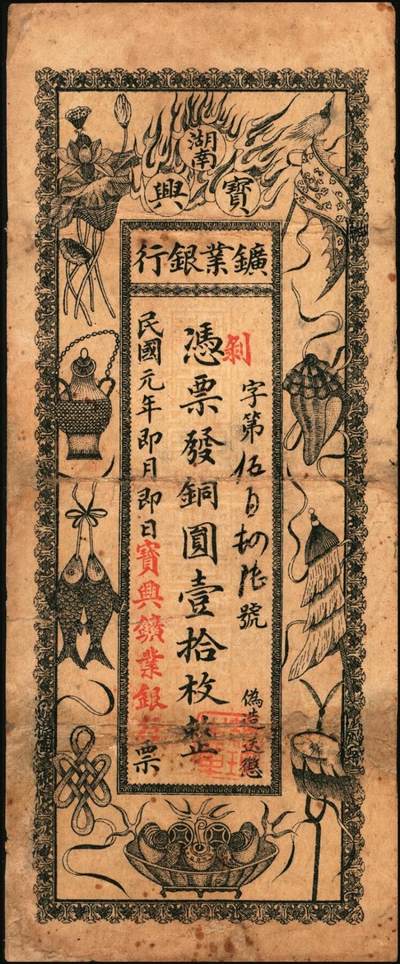 湖南
寶興
鑛業銀行
字第伍百號
偽造送懲
憑票發銅圓壹拾枚整
民國元年即月即日寶興鑛業銀行票